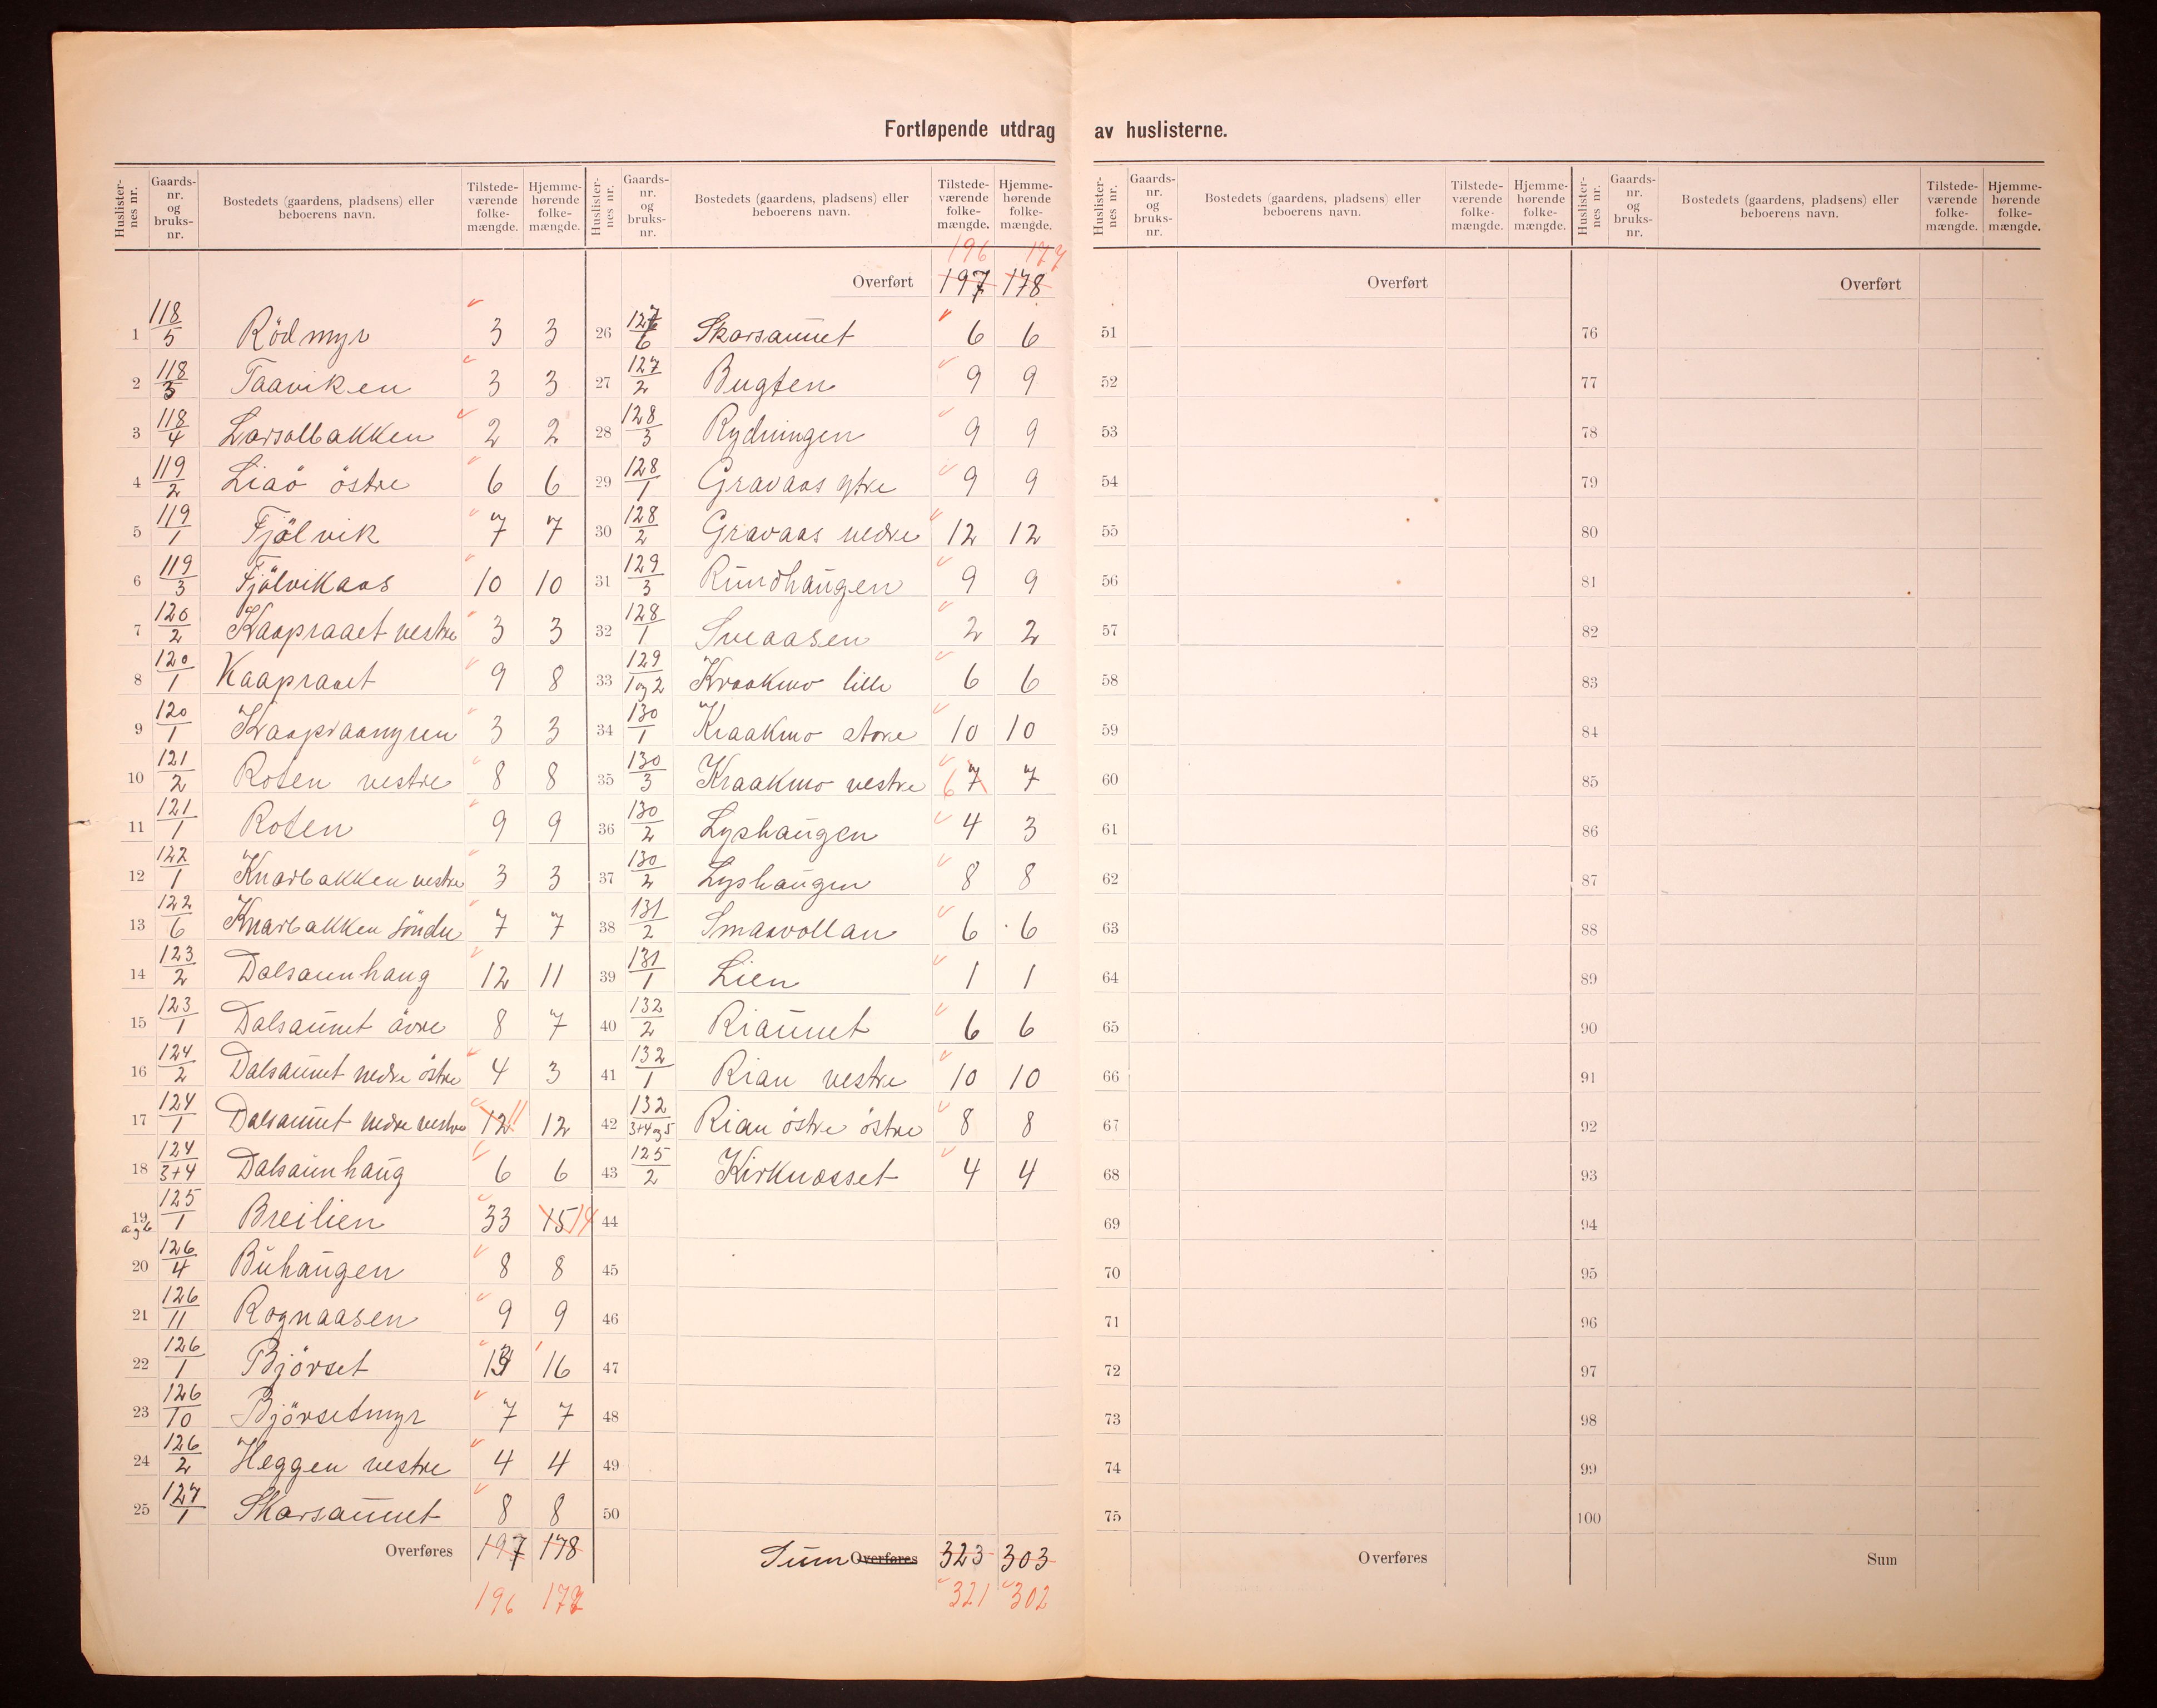 Fortløpende utdrag av huslisterne.
Huslister-nes nr. Gaards-nr. og bruks-nr. Bostedets (gaardens, pladsens) eller beboerens navn. Tilstede-værende folke-mængde. Hjemme-hørende folke-mængde.
1 118/5 Rödmyr 3 3
2 118/3 Taaviken 3 3
3 118/4 Larsolbakken 2 2
4 119/2 Liaö östre 6 6
5 119/1 Fjölvik 7 7
6 119/3 Fjölvikaas 10 10
7 120/2 Kaapraaet vestre 3 3
8 120/1 Kaapraaet 9 8
9 120/1 Kaapraamyren 3 3
10 121/2 Roten vestre 8 8
11 121/1 Roten 9 9
12 122/1 Knarbakken vestre 3 3
13 122/6 Knarbakken söndre 7 7
14 123/2 Dalsaunhaug 12 11
15 123/1 Dalsaunet övre 8 7
16 124/2 Dalsaunet nedre östre 4 3
17 124/1 Dalsaunet nedre vestre 12 11 12
18 124/3+4 Dalsaunhaug 6 6
19 a og b 125/1 Breilien 33 15 14
20 126/4 Buhaugen 8 8
21 126/11 Rognaasen 9 9
22 126/1 Björset 16
23 126/10 Björsetmyr 7 7
24 126/2 Heggen vestre 4 4
25 127/1 Skarsaunet 8 8
Overføres 197 178
196 177
Huslister-nes nr. Gaards-nr. og bruks-nr. Bostedets (gaardens, pladsens) eller beboerens navn. Tilstede-værende folke-mængde. Hjemme-hørende folke-mængde.
196 177
Overført 197 178
26 127/6 Skarsaunet 6 6
27 127/2 Bugten 9 9
28 128/3 Rydningen 9 9
29 128/1 Gravaas ytre 9 9
30 128/2 Gravaas nedre 12 12
31 129/3 Rundhaugen 9 9
32 128/1 Sveaasen 2 2
33 129/1 og 2 Kraakmo lille 6 6
34 130/1 Kraakmo store 10 10
35 130/3 Kraakmo vestre 6 7 7
36 130/2 Lyshaugen 4 3
37 130/2 Lyshaugen 8 8
38 131/2 Smaavollan 6 6
39 131/1 Lien 1 1
40 132/2 Riaunet 6 6
41 132/1 Rian vestre 10 10
42 132/3+4 og 5 Rian östre östre 8 8
43 125/2 Kirknesset 4 4
44
45
46
47
48
49
50
Sum Overføres 323 303
321 302
Huslister-nes nr. Gaards-nr. og bruks-nr. Bostedets (gaardens, pladsens) eller beboerens navn. Tilstede-værende folke-mængde. Hjemme-hørende folke-mængde.
Overført
51
52
53
54
55
56
57
58
59
60
61
62
63
64
65
66
67
68
69
70
71
72
73
74
75
Overføres
Huslister-nes nr. Gaards-nr. og bruks-nr. Bostedets (gaardens, pladsens) eller beboerens navn. Tilstede-værende folke-mængde. Hjemme-hørende folke-mængde.
Overført
76
77
78
79
80
81
82
83
84
85
86
87
88
89
90
91
92
93
94
95
96
97
98
99
100
Sum